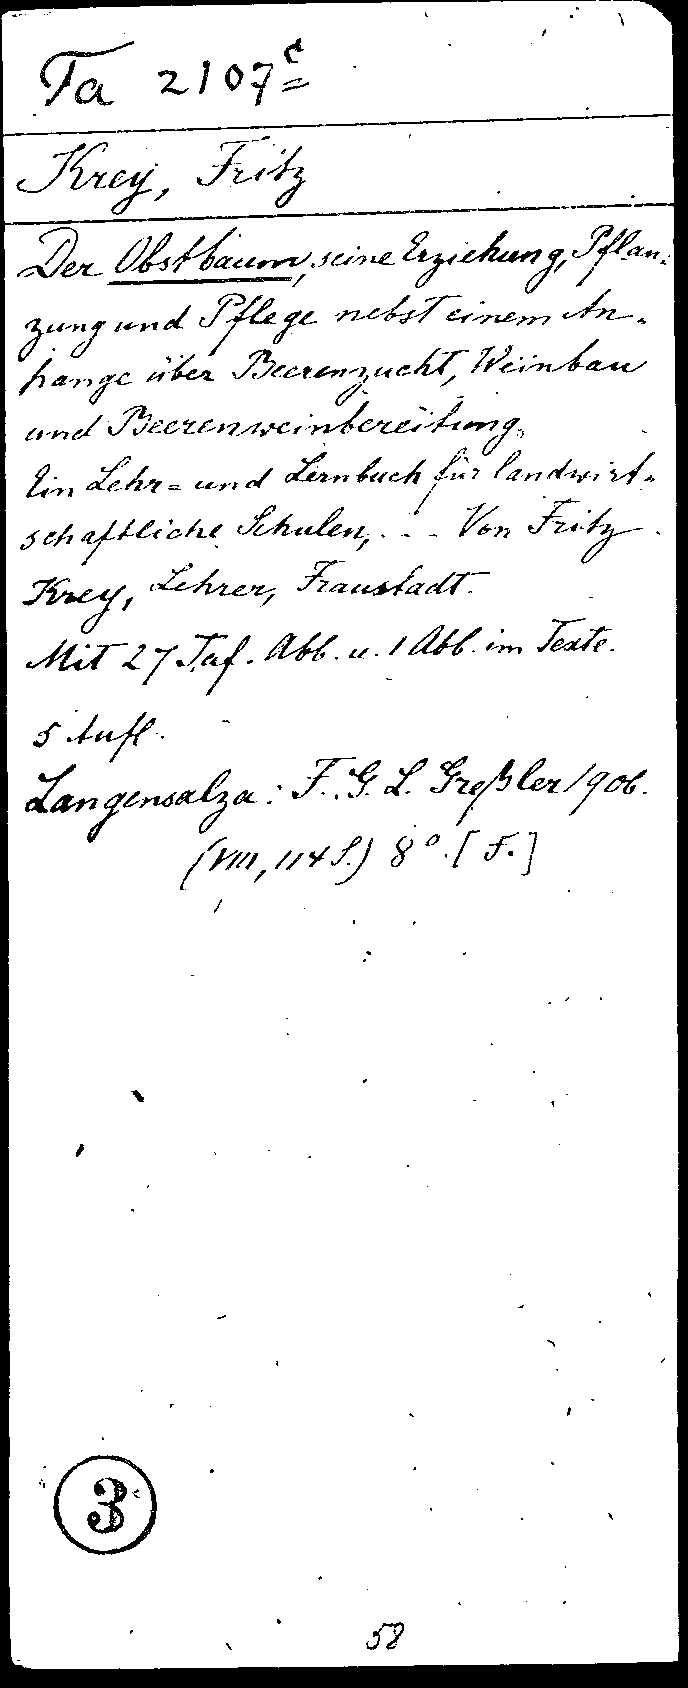 Ta 2107c
Krey, Fritz
Der Obstbaum, seine Erziehung, Pflan-
zung und Pflege nebst einem An-
hange über Beerenzucht, Weinbau
und Beerenweinbereitung.
Ein Lehr= und Lernbuch für landwirt-
schaftliche Schulen, ... Von Fritz
Krey, Lehrer, Fraustadt.
Mit 27 Taf. Abb. u. 1 Abb. im Texte.
5 Aufl.
Langensalza: F. G. L. Greßler 1906.
(VIII, 114 S.) 8°. [F.]
3
58